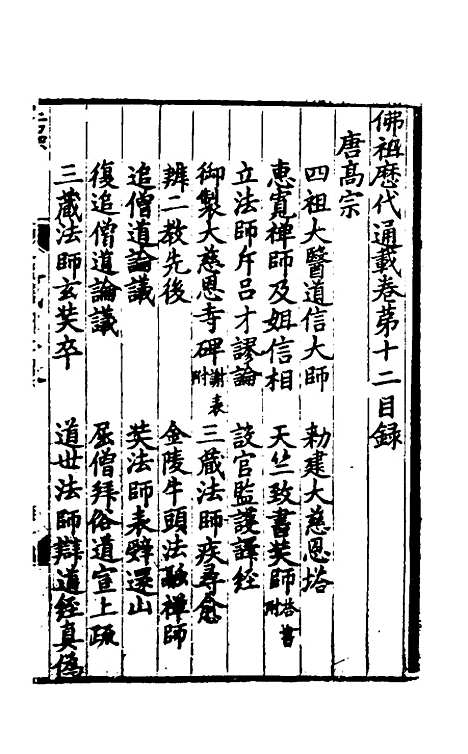 佛祖歷代通載卷第十二目録
唐髙宗
四祖大醫道信大師　勑建大慈恩塔
惠寛禅師及姐信相　天竺致書奘師答書附
立法師斥吕才謬論　設官監護譯經
御製大慈恩寺碑謝表附　三藏法師疾尋愈
辨二教先後　金陵牛頭法融禅師
追僧道論議　奘法師表辤還山
復追僧道論議　屈僧拜俗道宣上疏
三藏法師玄奘卒　道世法師辯道經真僞